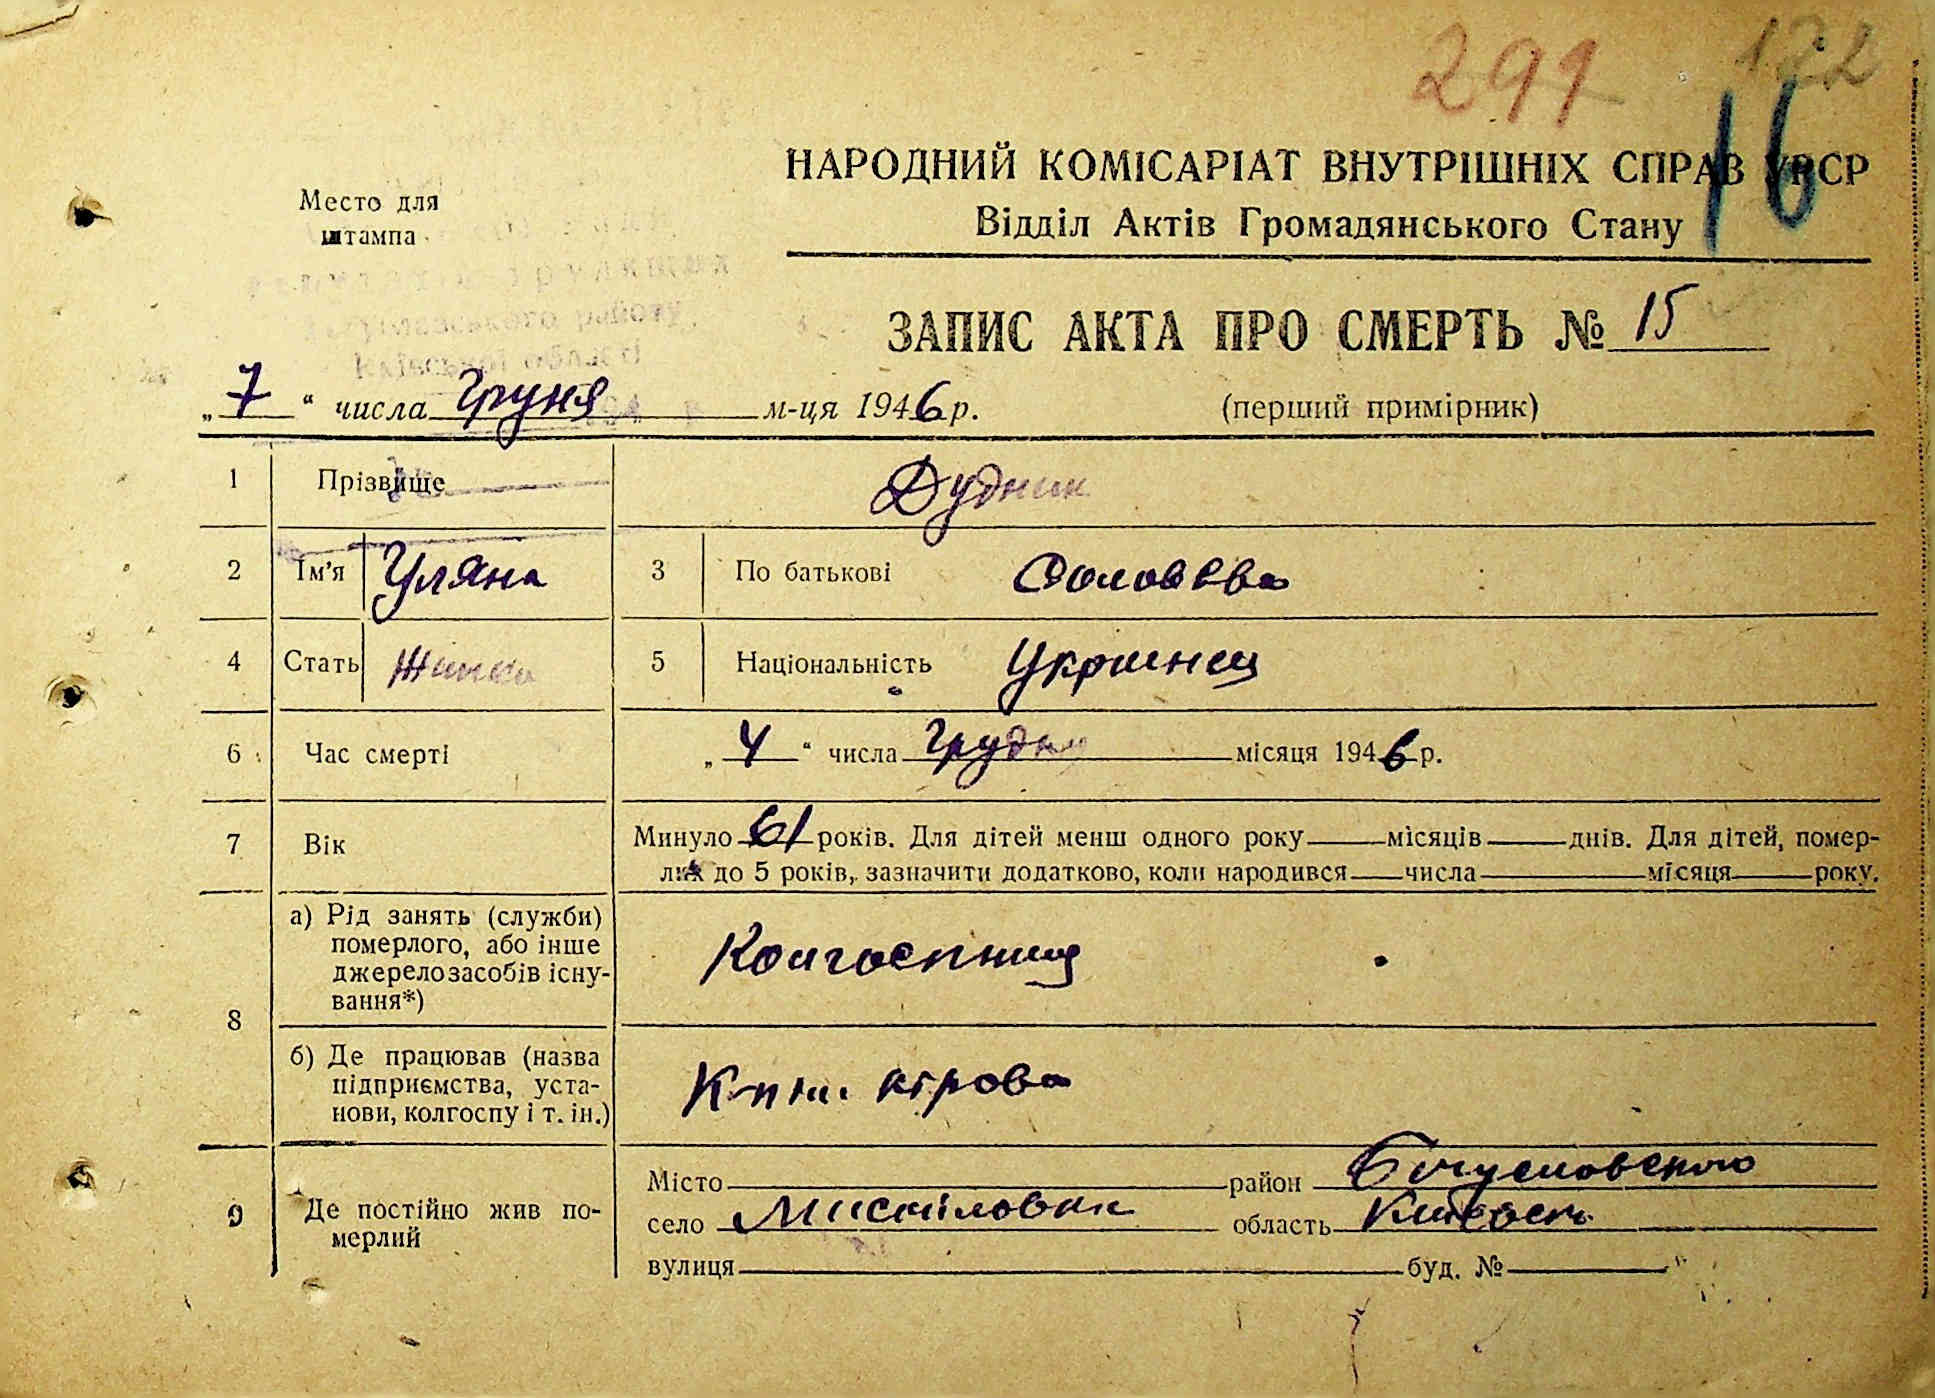 291 122
16
НАРОДНИЙ КОМІСАРІАТ ВНУТРІШНІХ СПРАВ УРСР
Відділ Актів Громадянського Стану
Место для
штампа
району
Київської області
ЗАПИС АКТА ПРО СМЕРТЬ № 15
„7“ числа Груня м-ця 1946 р. (перший примірник)
1 Прізвище Дудник
2 Ім'я Уляна 3 По батькові
4 Стать Жінка 5 Національність Украинец
6 Час смерті „4“ числа Грудня місяця 1946 р.
7 Вік Минуло 61 років. Для дітей менш одного року місяців днів. Для дітей, помер-
лих до 5 років, зазначити додатково, коли народився числа місяця року.
8 а) Рід занять (служби)
померлого, або інше
джерело засобів існу-
вання*)
Колгоспниця
б) Де працював (назва
підприємства, уста-
нови, колгоспу і т. ін.)
кірова
9 Де постійно жив по-
мерлий
Місто район
село область
вулиця буд. №